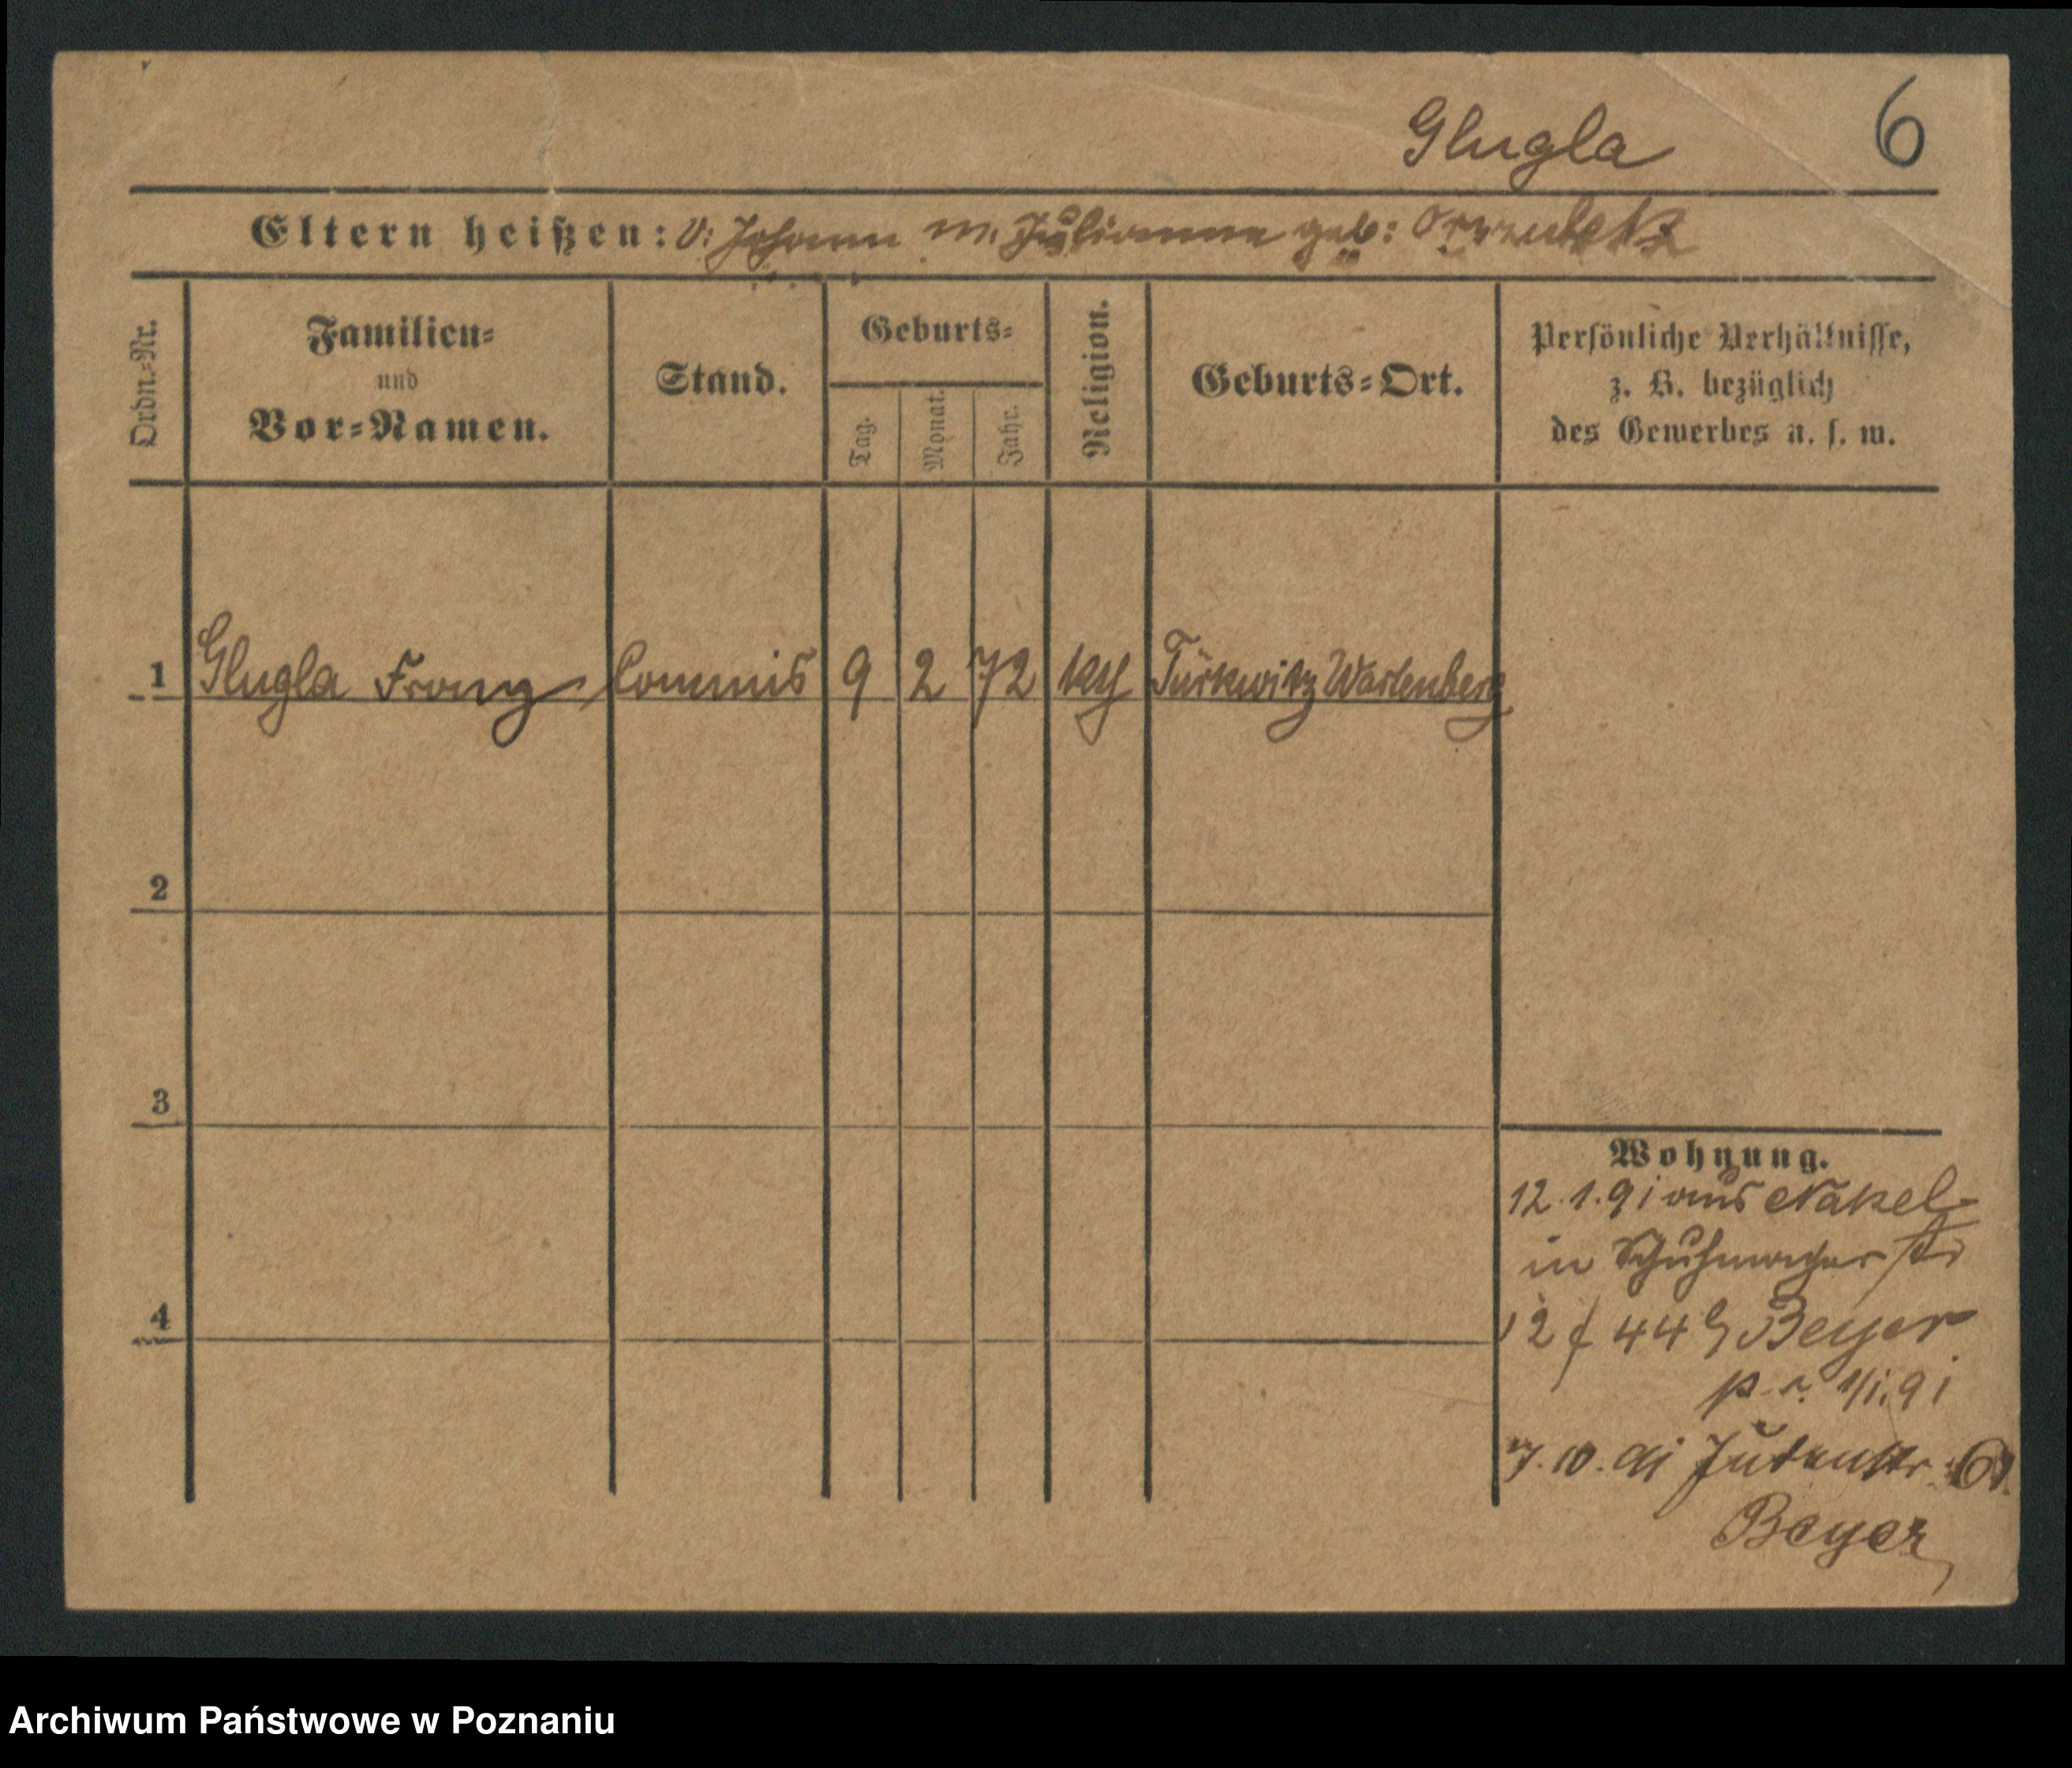 Glugla 6
Eltern heißen: V: Johann M. Julianne geb:
Ordn.-Nr.
Familien-
und
Vor-Namen.
Stand.
Geburts-
Tag.
Monat.
Jahr.
Religion.
Geburts-Ort.
Persönliche Verhältnisse,
z. B. bezüglich
des Gewerbes u. s. w.
1 Glugla Franz Commis 9 2 72 kth Türkwitz Wartenberg
2
3
4
Wohnung.
12.1.91 aus Nakel
in Schuhmacherstr
12 44 Beyer
1/1.91
7.10.91 Judenstr.
Beyer
Archiwum Państwowe w Poznaniu